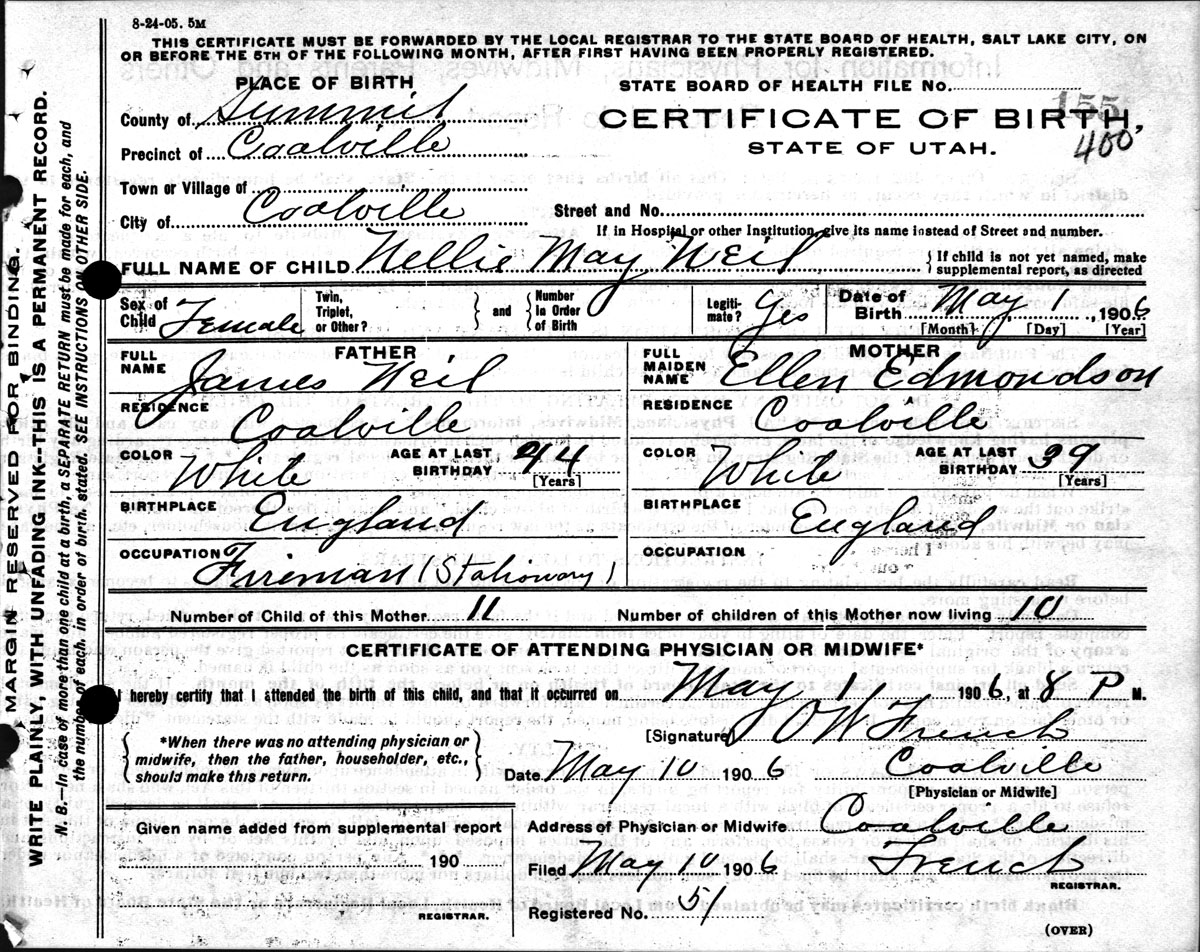 8-24-05. 5M
THIS CERTIFICATE MUST BE FORWARDED BY THE LOCAL REGISTRAR TO THE STATE BOARD OF HEALTH, SALT LAKE CITY, ON
OR BEFORE THE 5TH OF THE FOLLOWING MONTH, AFTER FIRST HAVING BEEN PROPERLY REGISTERED.
PLACE OF BIRTH
STATE BOARD OF HEALTH FILE NO.
155
County of Summit
CERTIFICATE OF BIRTH,
400
Precinct of Coalville
STATE OF UTAH.
Town or Village of
City of Coalville Street and No.
If in Hospital or other Institution, give its name instead of Street and number.
FULL NAME OF CHILD Nellie May Neil { If child is not yet named, make
supplemental report, as directed
Sex of Child Female Twin, Triplet, or Other? { and } Number In Order of Birth Legiti-mate? Yes Date of Birth May 1, 1906
[Month] [Day] [Year]
FATHER MOTHER
FULL NAME James Neil FULL MAIDEN NAME Ellen Edmondson
RESIDENCE Coalville RESIDENCE Coalville
COLOR White AGE AT LAST BIRTHDAY 44 [Years] COLOR White AGE AT LAST BIRTHDAY 39 [Years]
BIRTHPLACE England BIRTHPLACE England
OCCUPATION Fireman (Stationary) OCCUPATION
Number of Child of this Mother 11 Number of children of this Mother now living 10
CERTIFICATE OF ATTENDING PHYSICIAN OR MIDWIFE*
I hereby certify that I attended the birth of this child, and that it occurred on May 1 1906, at 8 P M.
{ *When there was no attending physician or
midwife, then the father, householder, etc.,
should make this return. }
[Signature] O W French
Date May 10 1906 Coalville
[Physician or Midwife]
Given name added from supplemental report
190
REGISTRAR.
Address of Physician or Midwife Coalville
Filed May 10 1906 French
REGISTRAR.
Registered No. 51
(OVER)
MARGIN RESERVED FOR BINDING.
WRITE PLAINLY, WITH UNFADING INK--THIS IS A PERMANENT RECORD.
N. B.—In case of more than one child at a birth, a SEPARATE RETURN must be made for each, and
the number of each, in order of birth, stated. SEE INSTRUCTIONS ON OTHER SIDE.